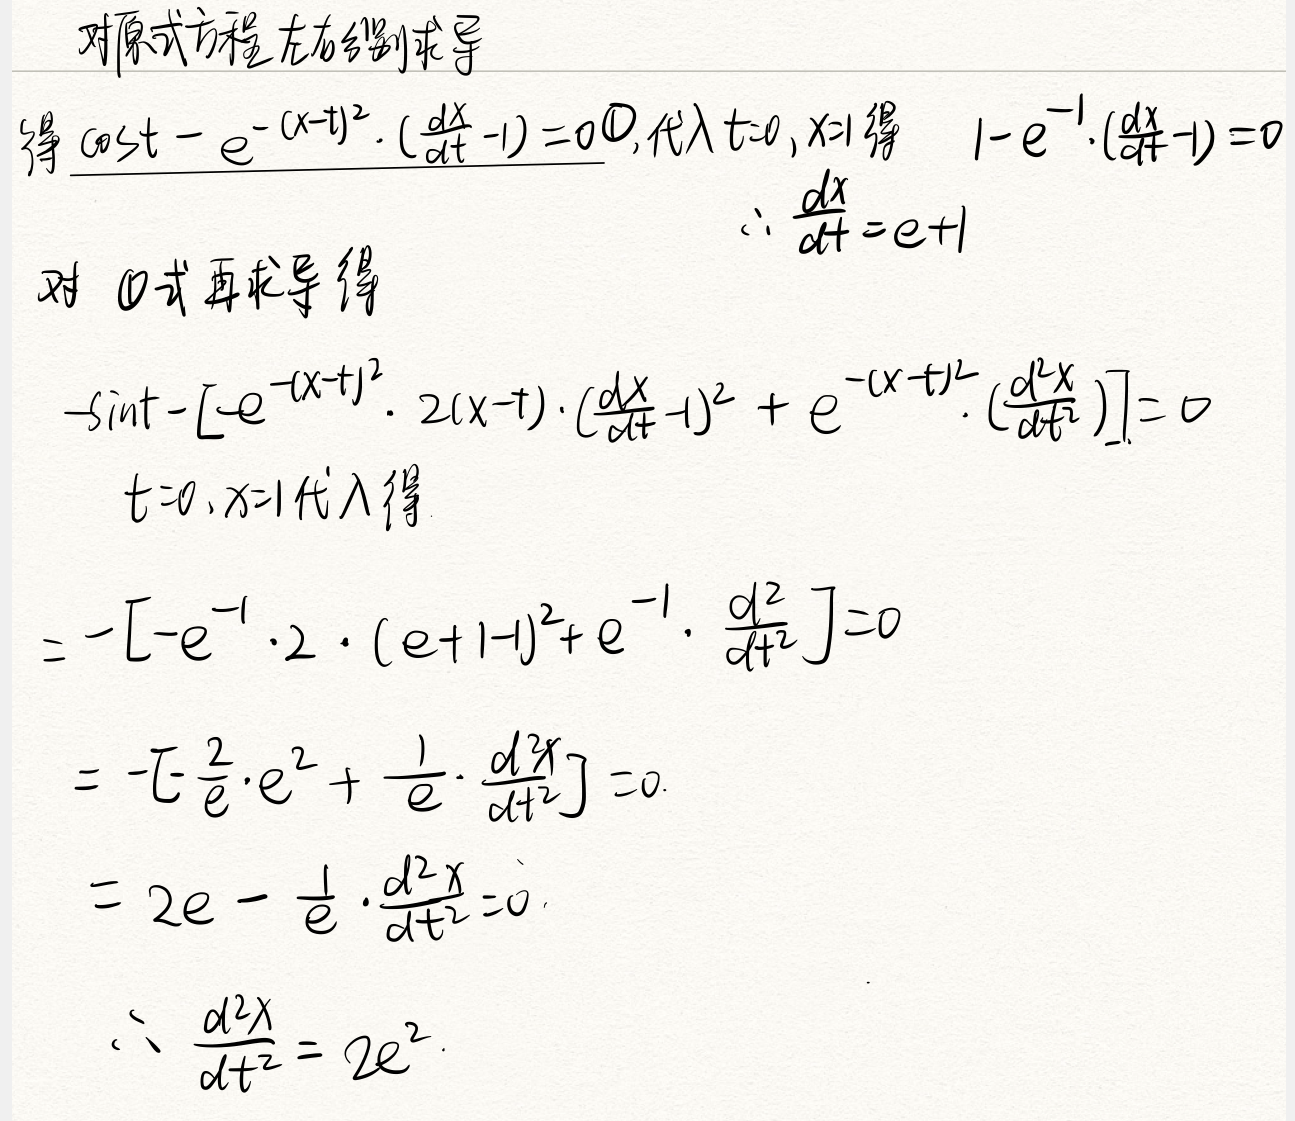 对原式方程左右分别求导
得 cost - e^{-(x-t)^2}·(dx/dt -1)=0①,代入t=0,x=1得 1-e^{-1}·(dx/dt -1)=0
∴ dx/dt =e+1
对 ①式再求导得
-sint-[-e^{-(x-t)^2}·2(x-t)·(dx/dt -1)^2 + e^{-(x-t)^2}·(d^2x/dt^2)]=0
t=0,x=1代入得
= -[-e^{-1}·2·(e+1-1)^2+e^{-1}·d^2/dt^2]=0
= -[-2/e·e^2+1/e·d^2x/dt^2]=0.
= 2e-1/e·d^2x/dt^2=0.
∴ d^2x/dt^2=2e^2.